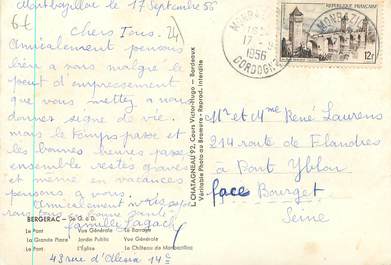 Monbazillac le 17 Septembre 56
Chers Tous.
Amicalement pensons
bien a vous malgré le
peut d'empressement
que vous mettez a nous
donner signe de vie.
mais le temps passe et
les bonnes heures passé
ensemble restes gravés
et même en vacances
pensons a vous.
Amicalement
tous bonne santé
famille
43 rue d'Alesia 14e
BERGERAC - De G. à D.
Le Pont Vue Générale Le Barrage
La Grande Place Jardin Public Vue Générale
Le Pont L'Église Le Château de Monbazillac
L. CHATAGNEAU 92, Cours Victor-Hugo - Bordeaux
Véritable Photo au Bromure - Reprod. interdite
MONBAZILLAC
17-9
1956
DORDOGNE
12f
Mr et Mme René Laurens
214 route de Flandres
à Pont Yblon
face Bourget
Seine